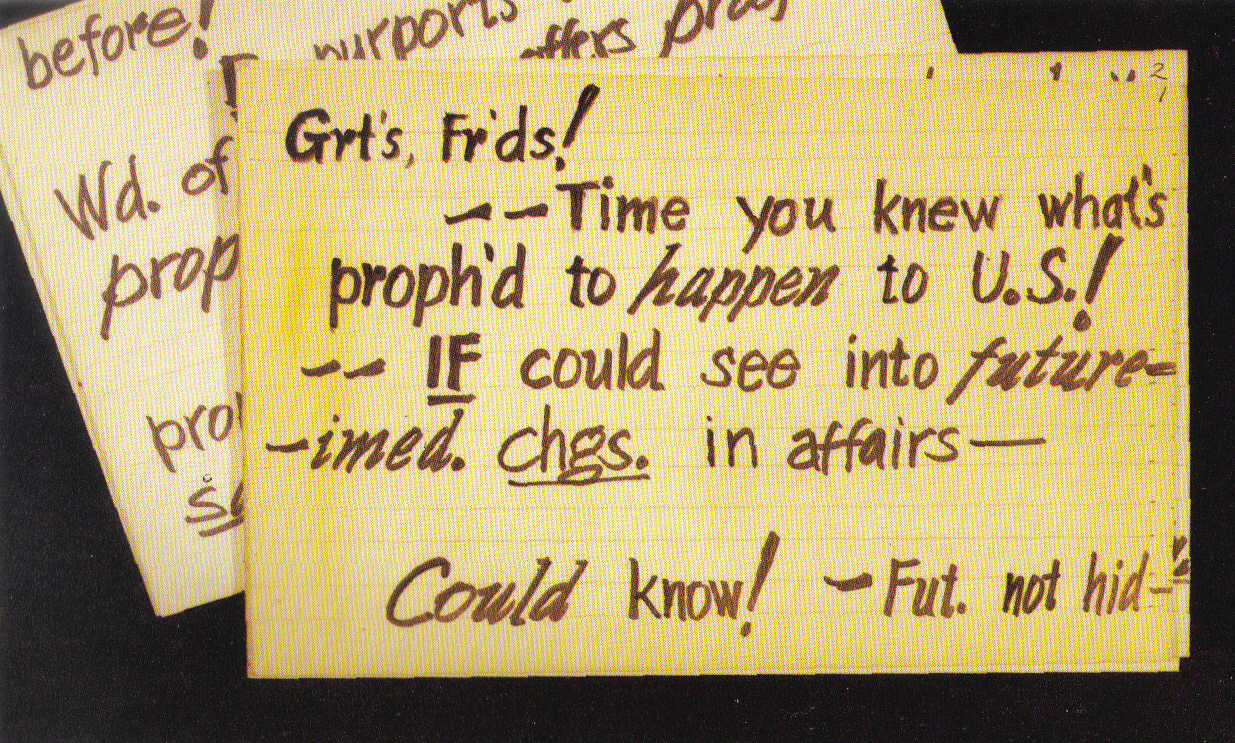 before!
purports
offers proof
Wd. of
prop
pro
2
1
Grt's, Fr'ds!
——Time you knew what's
proph'd to happen to U.S.!
—— IF could see into future—
—imed. chgs. in affairs—
Could know! —Fut. not hid—